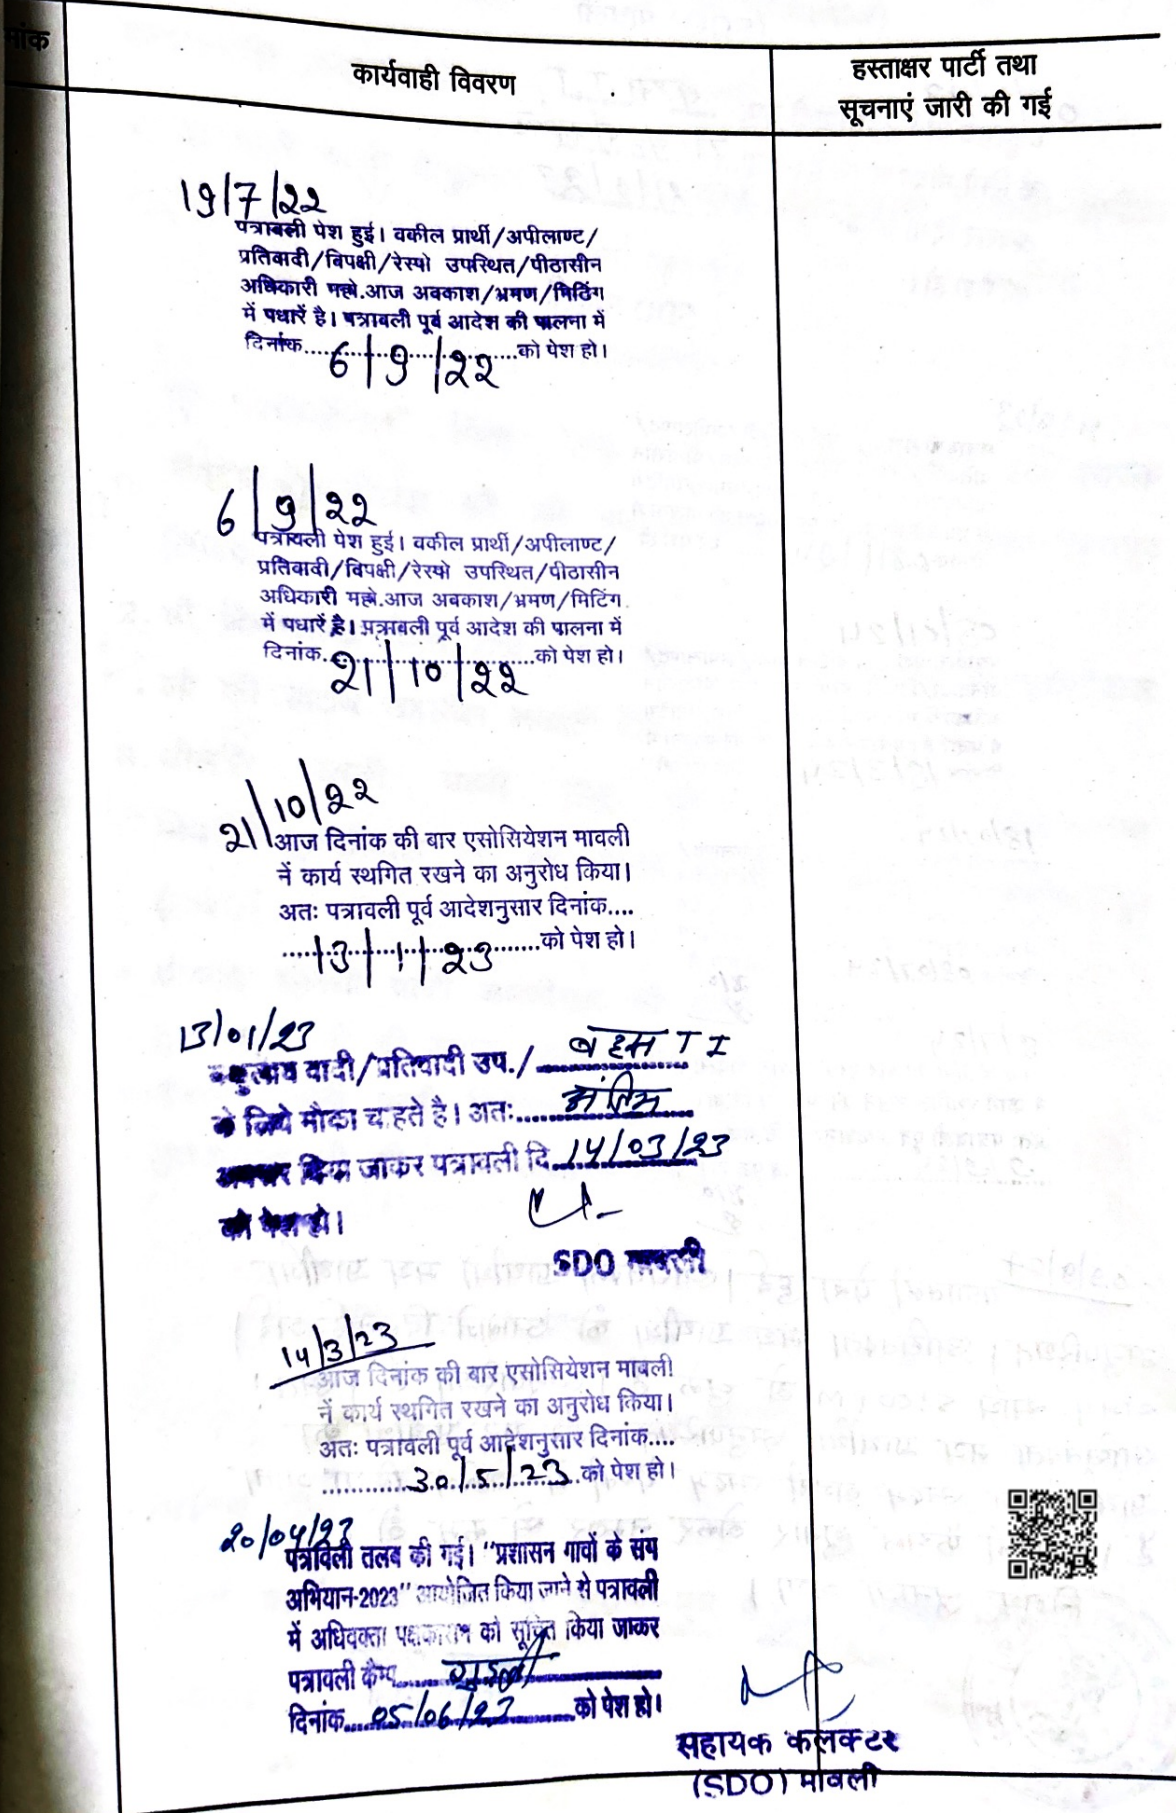 मांक
कार्यवाही विवरण
हस्ताक्षर पार्टी तथा
सूचनाएं जारी की गई
19/7/22
पत्रावली पेश हुई। वकील प्रार्थी/अपीलाण्ट/
प्रतिवादी/विपक्षी/रेस्पो उपस्थित/पीठासीन
अधिकारी महो.आज अवकाश/भ्रमण/मिटिंग
में पधारें है। पत्रावली पूर्व आदेश की पालना में
दिनांक....6/9/22....को पेश हो।
6/9/22
पत्रावली पेश हुई। वकील प्रार्थी/अपीलाण्ट/
प्रतिवादी/विपक्षी/रेस्पो उपस्थित/पीठासीन
अधिकारी महो.आज अवकाश/भ्रमण/मिटिंग
में पधारें है। पत्रावली पूर्व आदेश की पालना में
दिनांक....21/10/22....को पेश हो।
21/10/22
आज दिनांक की बार एसोसियेशन मावली
नें कार्य स्थगित रखने का अनुरोध किया।
अतः पत्रावली पूर्व आदेशनुसार दिनांक....
....13/1/23....को पेश हो।
13/01/23
वादी/प्रतिवादी उप./ बहस T I
के लिये मौका चाहते है। अतः....अंतिम
अवसर दिया जाकर पत्रावली दि.14/03/23
को पेश हो।
SDO मावली
14/3/23
आज दिनांक की बार एसोसियेशन मावली
नें कार्य स्थगित रखने का अनुरोध किया।
अतः पत्रावली पूर्व आदेशनुसार दिनांक....
....30/5/23....को पेश हो।
20/04/23
पत्रावली तलब की गई। "प्रशासन गावों के संग
अभियान-2023" आयोजित किया जाने से पत्रावली
में अधिवक्ता पक्षकारान को सूचित किया जाकर
पत्रावली कैम्प....
दिनांक....05/06/23....को पेश हो।
सहायक कलक्टर
(SDO) मावली